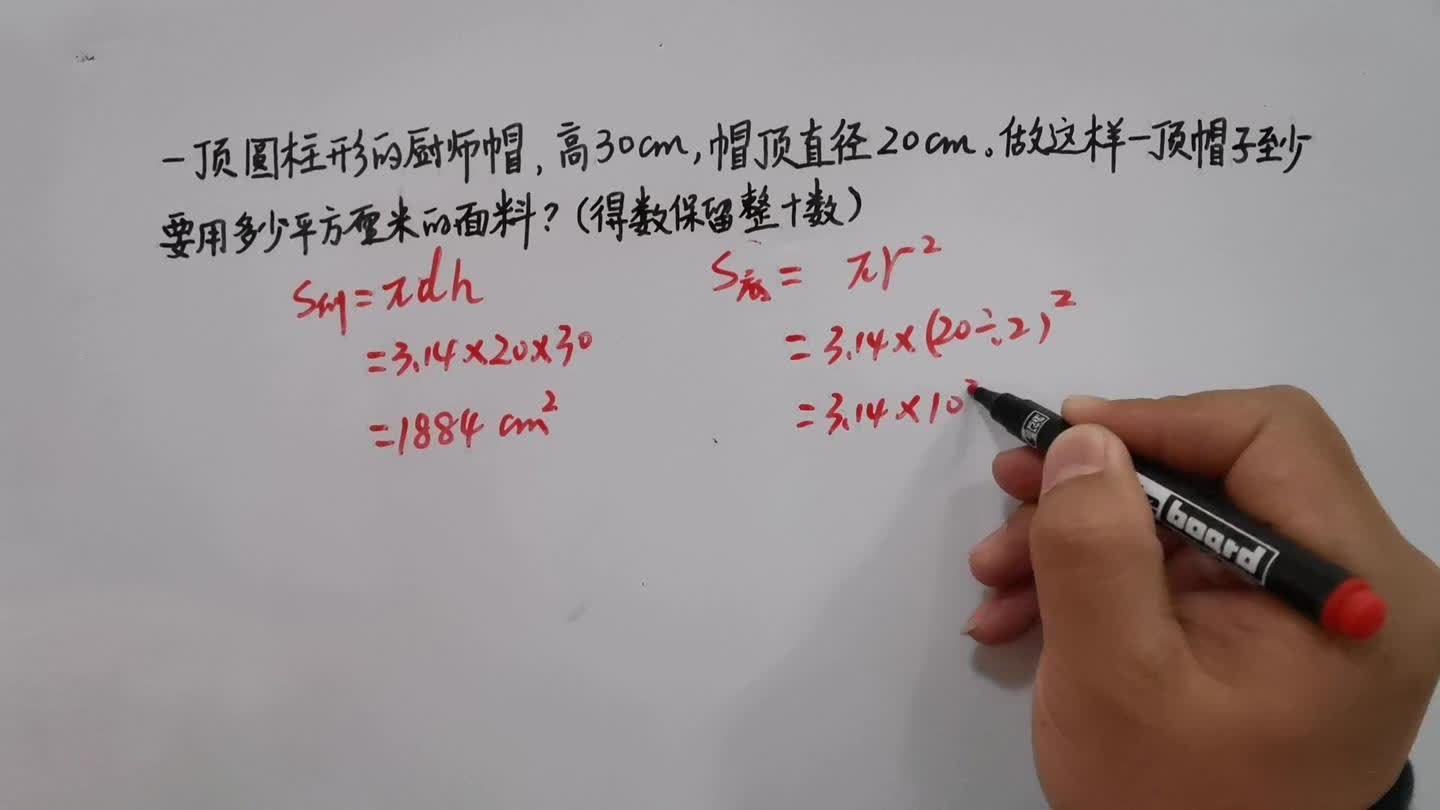 一顶圆柱形的厨师帽,高30cm,帽顶直径20cm。做这样一顶帽子至少
要用多少平方厘米的面料?(得数保留整十数)
S侧=πdh
=3.14×20×30
=1884 cm²
S底= πr²
=3.14×(20÷2)²
=3.14×10²
board